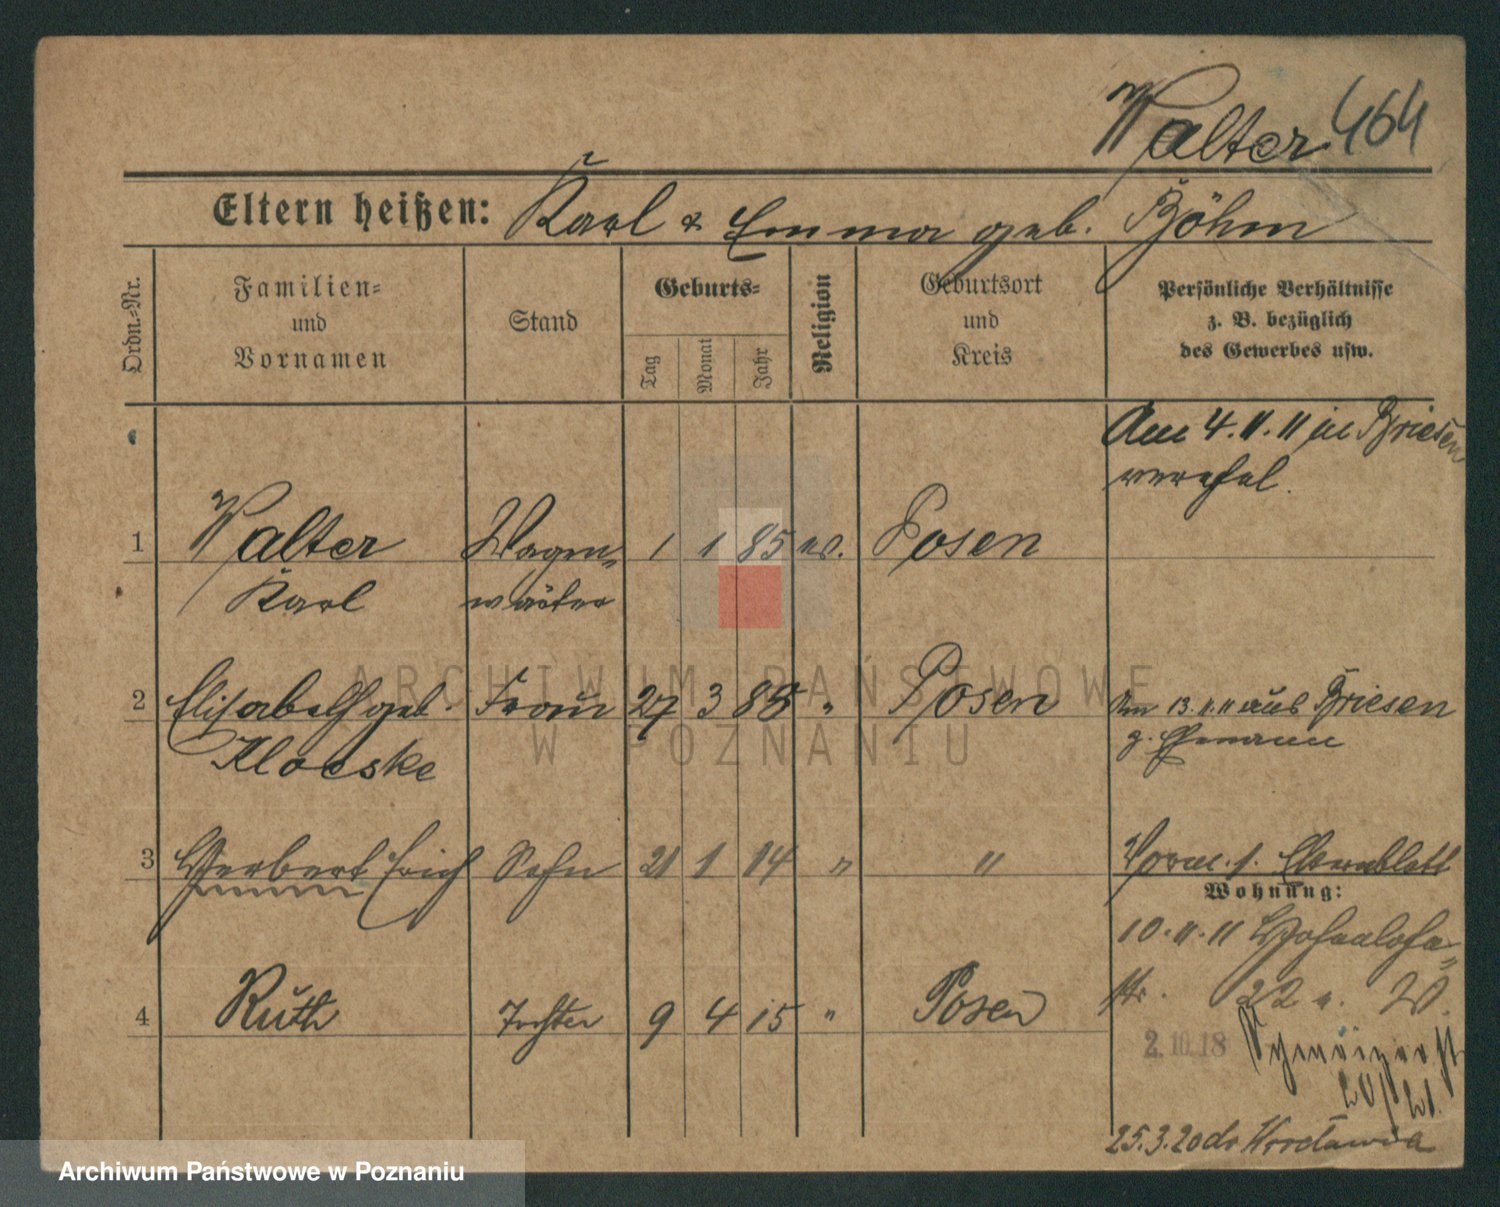 Walter 464
Eltern heißen: Karl & Emma geb. Böhm
Ordn.-Nr.
Familien-
und
Vornamen
Stand
Geburts-
Tag
Monat
Jahr
Religion
Geburtsort
und
Kreis
Persönliche Verhältnisse
z. B. bezüglich
des Gewerbes usw.
Am 4.11.11 in Briesen
verehel.
1 Walter Wagen- 1 1 85 ev. Posen
Karl wärter
2 Elisabeth geb. Frau 27 3 88 " Posen Am 13.11.11 aus Briesen
z. Ehemann
3 Herbert Erich Sohn 21 1 14 " "
Wohnung:
10.11.11
str. 22 a. W.
4 Ruth Tochter 9 4 15 " Posen
2.10.18
25.3.20 do Wrocławia
ARCHIWUM PAŃSTWOWE
W POZNANIU
Archiwum Państwowe w Poznaniu